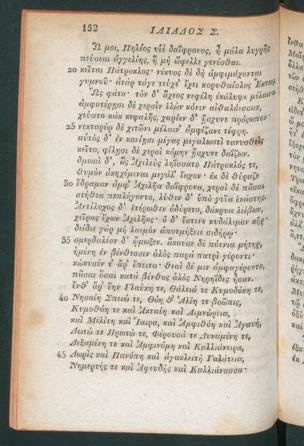 152 ΙΛΙΑΔΟΣ Σ.
Ὤ μοι, Πηλέος υἱὲ δαΐφρονος, ἦ μάλα λυγρῆς
πεύσεαι ἀγγελίης, ἣ μὴ ὤφελλε γενέσθαι.
20 κεῖται Πάτροκλος· νέκυος δὲ δὴ ἀμφιμάχονται
γυμνοῦ· ἀτὰρ τάγε τεύχε' ἔχει κορυθαίολος Ἕκτωρ.
Ὣς φάτο· τὸν δ' ἄχεος νεφέλη ἐκάλυψε μέλαινα·
ἀμφοτέρῃσι δὲ χερσὶν ἑλὼν κόνιν αἰθαλόεσσαν,
χεύατο κὰκ κεφαλῆς, χαρίεν δ' ᾔσχυνε πρόσωπον·
25 νεκταρέῳ δὲ χιτῶνι μέλαιν' ἀμφίζανε τέφρη.
αὐτὸς δ' ἐν κονίῃσι μέγας μεγαλωστὶ τανυσθεὶς
κεῖτο, φίλῃσι δὲ χερσὶ κόμην ᾔσχυνε δαΐζων.
δμωαὶ δ', ἃς Ἀχιλεὺς ληΐσσατο Πάτροκλός τε,
θυμὸν ἀκηχέμεναι μεγάλ' ἴαχον· ἐκ δὲ θύραζε
30 ἔδραμον ἀμφ' Ἀχιλῆα δαΐφρονα, χερσὶ δὲ πᾶσαι
στήθεα πεπλήγοντο, λύθεν δ' ὑπὸ γυῖα ἑκάστης.
Ἀντίλοχος δ' ἑτέρωθεν ὀδύρετο, δάκρυα λείβων,
χεῖρας ἔχων Ἀχιλῆος· ὁ δ' ἔστενε κυδάλιμον κῆρ·
δείδιε γὰρ μὴ λαιμὸν ἀποτμήξειε σιδήρῳ·
35 σμερδαλέον δ' ᾤμωξεν. ἄκουσε δὲ πότνια μήτηρ,
ἡμένη ἐν βένθεσσιν ἁλὸς παρὰ πατρὶ γέροντι·
κώκυσέν τ' ἄρ' ἔπειτα· θεαὶ δέ μιν ἀμφαγέροντο,
πᾶσαι ὅσαι κατὰ βένθος ἁλὸς Νηρηΐδες ἦσαν.
ἔνθ' ἄρ' ἔην Γλαύκη τε, Θάλειά τε Κυμοδόκη τε,
40 Νησαίη Σπειώ τε, Θόη θ' Ἁλίη τε βοῶπις,
Κυμοθόη τε καὶ Ἀκταίη καὶ Λιμνώρεια,
καὶ Μελίτη καὶ Ἴαιρα, καὶ Ἀμφιθόη καὶ Ἀγαυή,
Δωτώ τε Πρωτώ τε, Φέρουσά τε Δυναμένη τε,
Δεξαμένη τε καὶ Ἀμφινόμη καὶ Καλλιάνειρα,
45 Δωρὶς καὶ Πανόπη καὶ ἀγακλειτὴ Γαλάτεια,
Νημερτής τε καὶ Ἀψευδὴς καὶ Καλλιάνασσα·